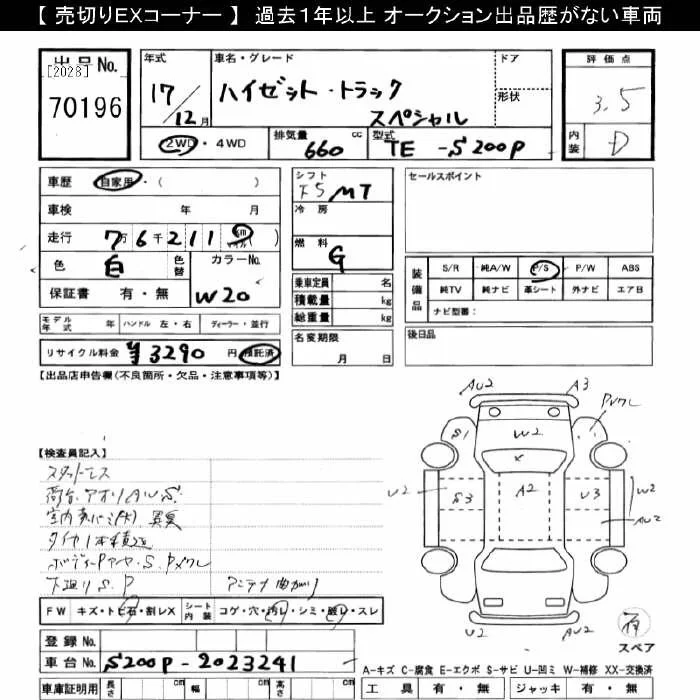 【 売切りEXコーナー 】 過去1年以上 オークション出品歴がない車両
出品No.
[2028]
70196
年式
17/12月
車名・グレード
ハイゼット・トラック
スペシャル
ドア
形状
評価点
3.5
内装
D
2WD・4WD
排気量
660 cc
型式
TE-S200P
車歴 自家用・( )
車検 年 月
走行 7万6千211 9 Km マイル ( )
色 白 色替 カラーNo.
保証書 有・無 W20
シフト
F5 MT
冷房
燃料
G
乗車定員 名
積載量 kg
総重量 kg
名変期限
月 日
セールスポイント
装備品
S/R 純A/W P/S P/W ABS
純TV 純ナビ 革シート 外ナビ エアB
ナビ型番:
後日品
モデル年式 年 ハンドル 左・右 ディーラー・並行
リサイクル料金 ¥3290 円 預託済
【出品店申告欄(不良箇所・欠品・注意事項等)】
【検査員記入】
スタットレス
荷台、アオリ A U S
タイヤ1本積込
下廻り S. P アンテナ曲がり
FW キズ・トビ石・割レX シート内装 コゲ・穴・汚レ・シミ・破レ・スレ
登録No.
車台No. S200P-2023241
車庫証明用 長さ cm 幅 cm 高さ cm
AU2
A3
Pメクレ
S1
W2
U2
S3
A2
U3
W2
AU2
U2
AU2
有
スペア
A-キズ C-腐食 E-エクボ S-サビ U-凹ミ W-補修 XX-交換済
工具 有・無 ジャッキ 有・無